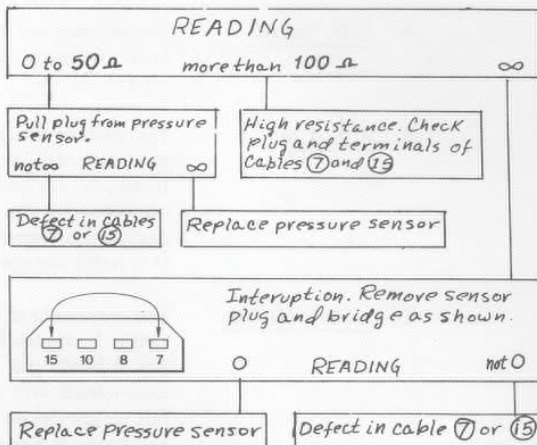 READING
0 to 50 Ω more than 100 Ω ∞
Pull plug from pressure
sensor.
not∞ READING ∞
High resistance. Check
plug and terminals of
Cables ⑦ and ⑮
Defect in cables
⑦ or ⑮
Replace pressure sensor
Interuption. Remove sensor
plug and bridge as shown.
15 10 8 7
0 READING not 0
Replace Pressure sensor
Defect in cable ⑦ or ⑮